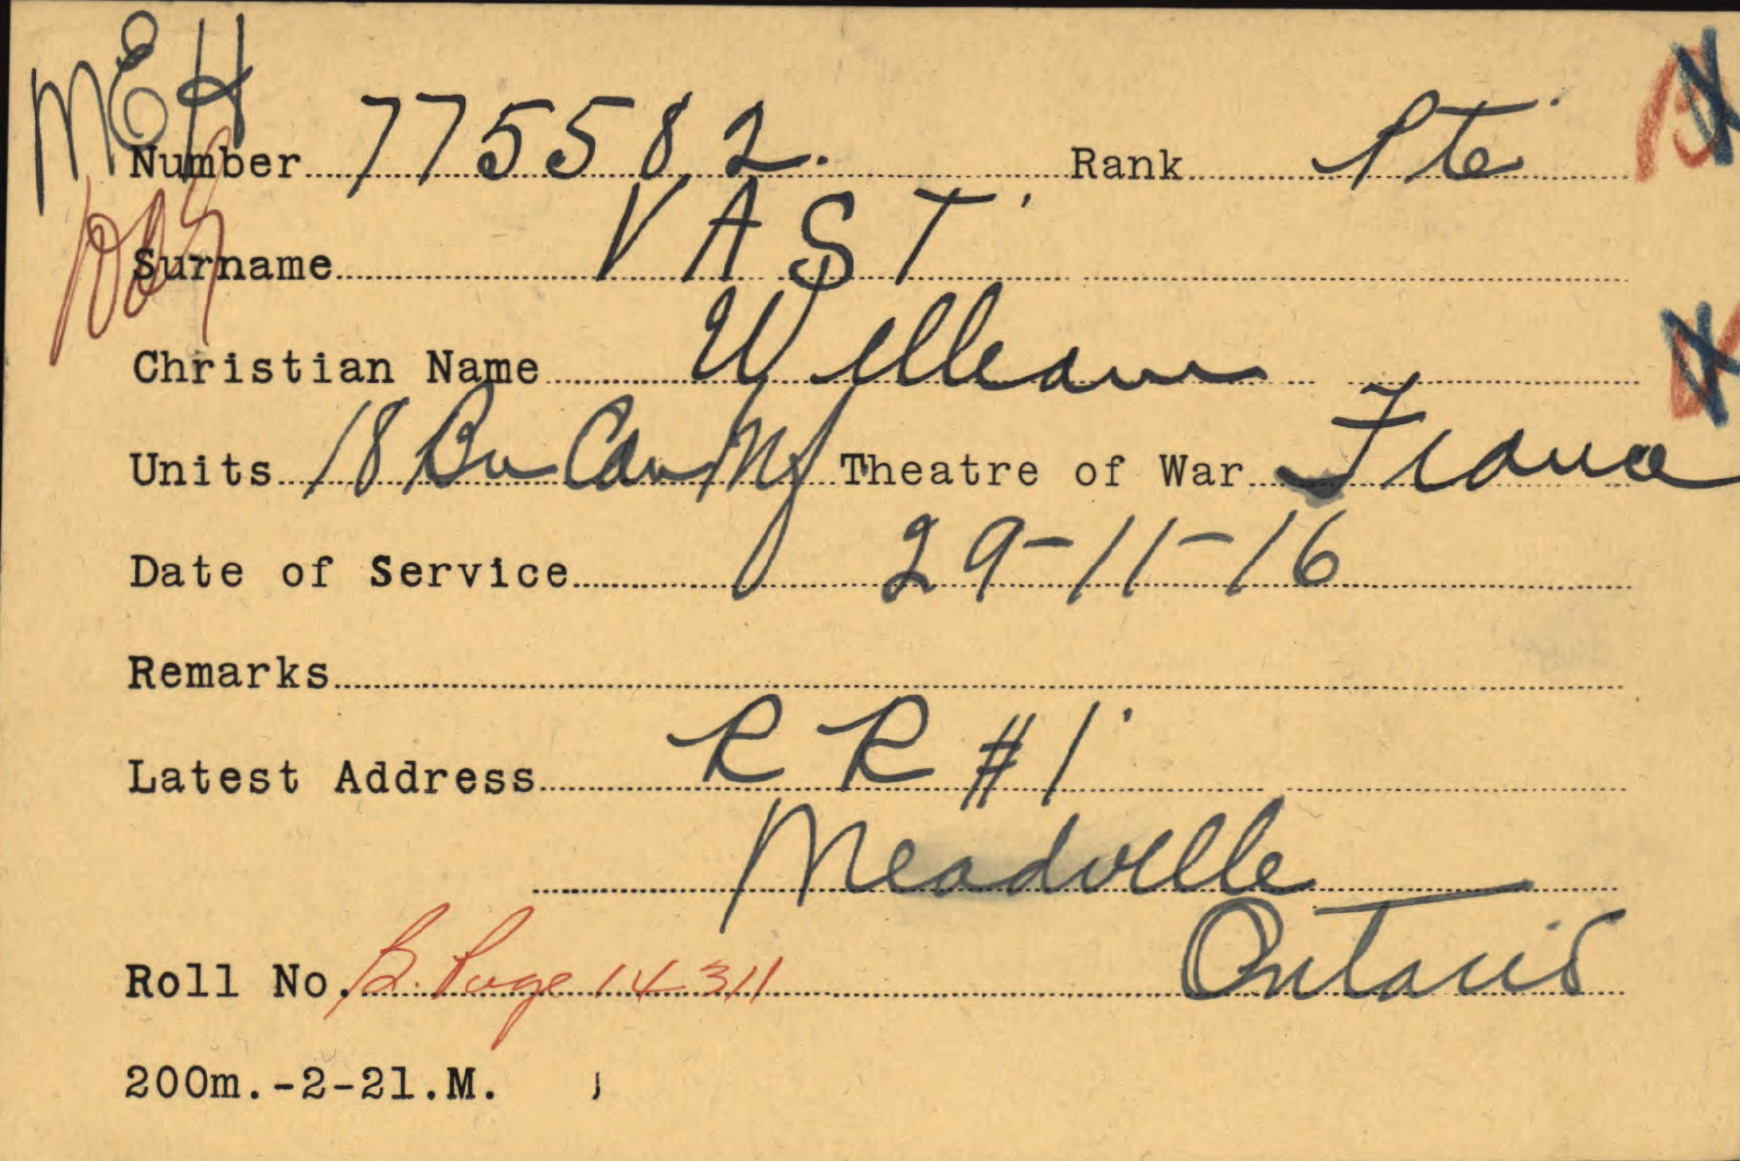 MEH
Number 775582. Rank Pte
Surname VAST
Christian Name William
Units 18 Bn Can Inf Theatre of War France
Date of Service 29-11-16
Remarks
Latest Address RR #1
Meadville
Ontario
Roll No. B. Page 14311
200m.-2-21.M.